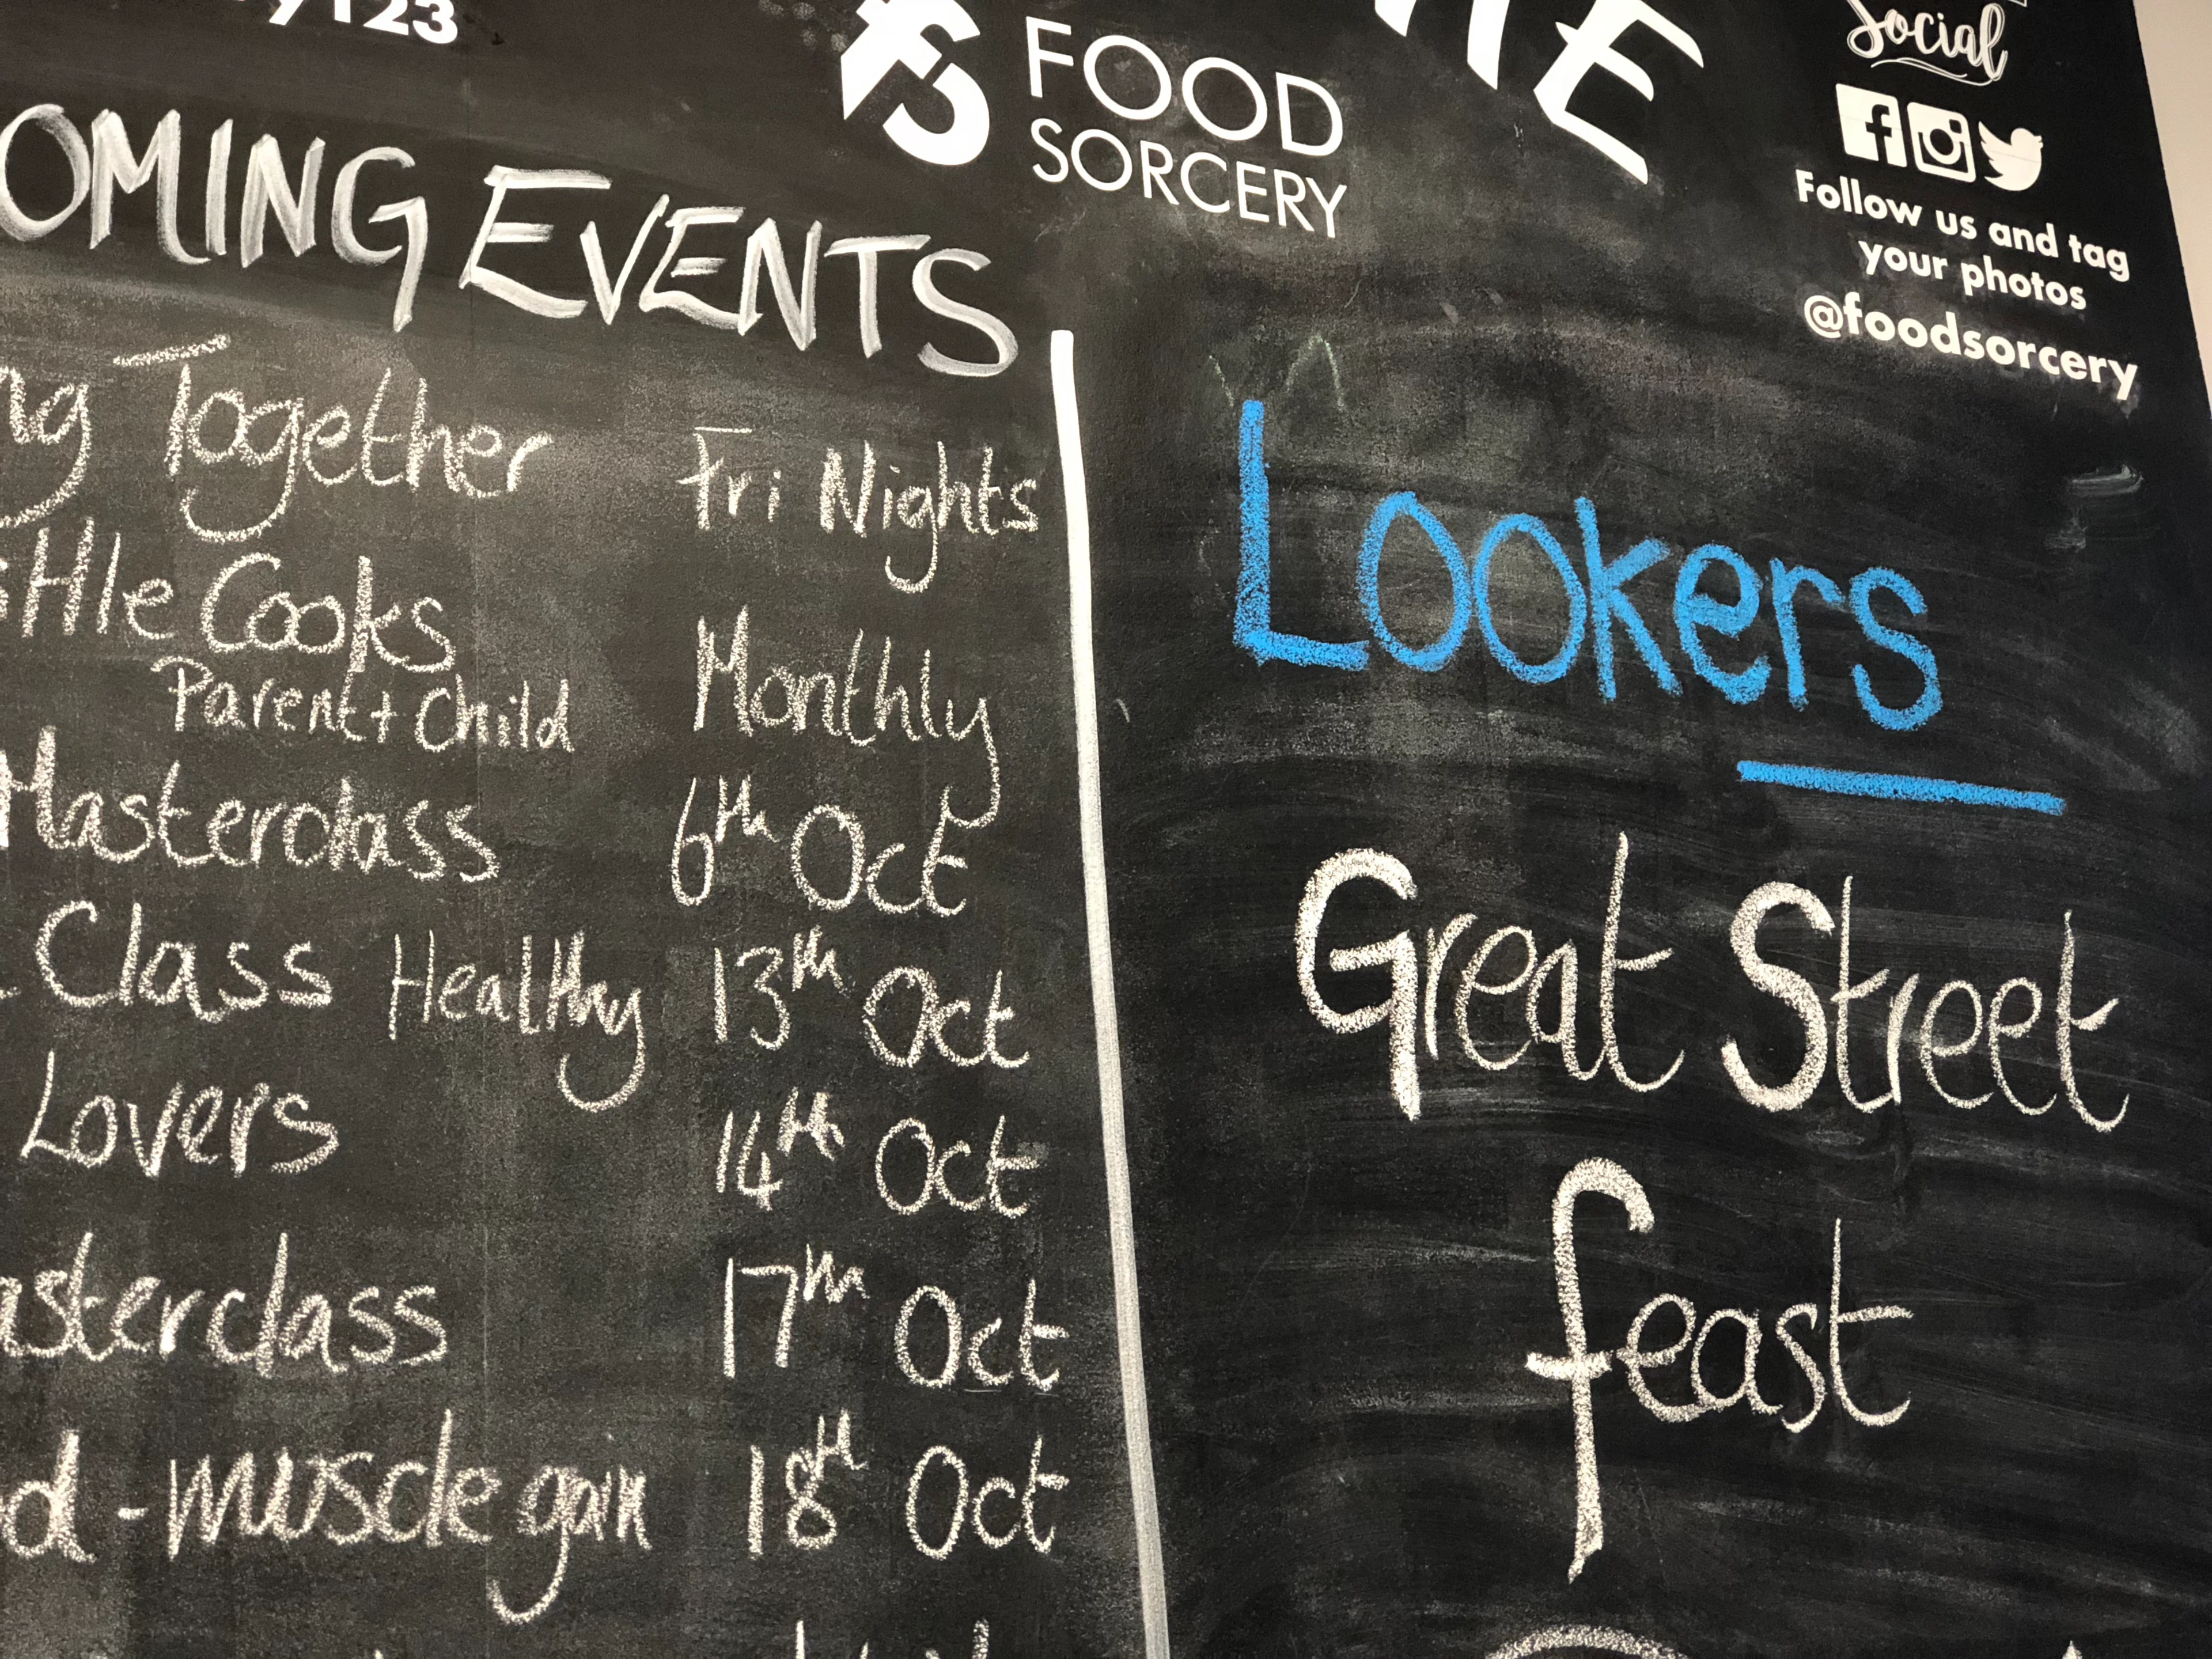 FOOD
SORCERY
Social
Follow us and tag
your photos
@foodsorcery
EVENTS
Together Fri Nights
Cooks
Parent + Child Monthly
Masterclass 6th Oct
Class Healthy 13th Oct
Lovers 14th Oct
17th Oct
- muscle gain 18th Oct
Lookers
Great Street
feast